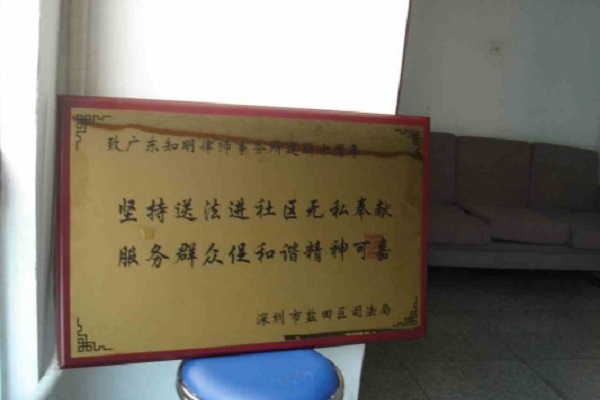 致广东知明律师事务所建所十周年
坚持送法进社区无私奉献
服务群众促和谐精神可嘉
深圳市盐田区司法局